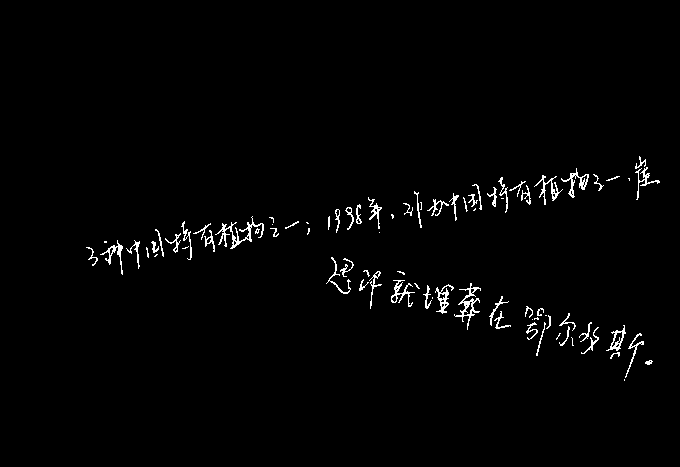 3种中国特有植物之一；1998年、邓为中国特有植物之一.崖
思汗就埋葬在鄂尔多斯。